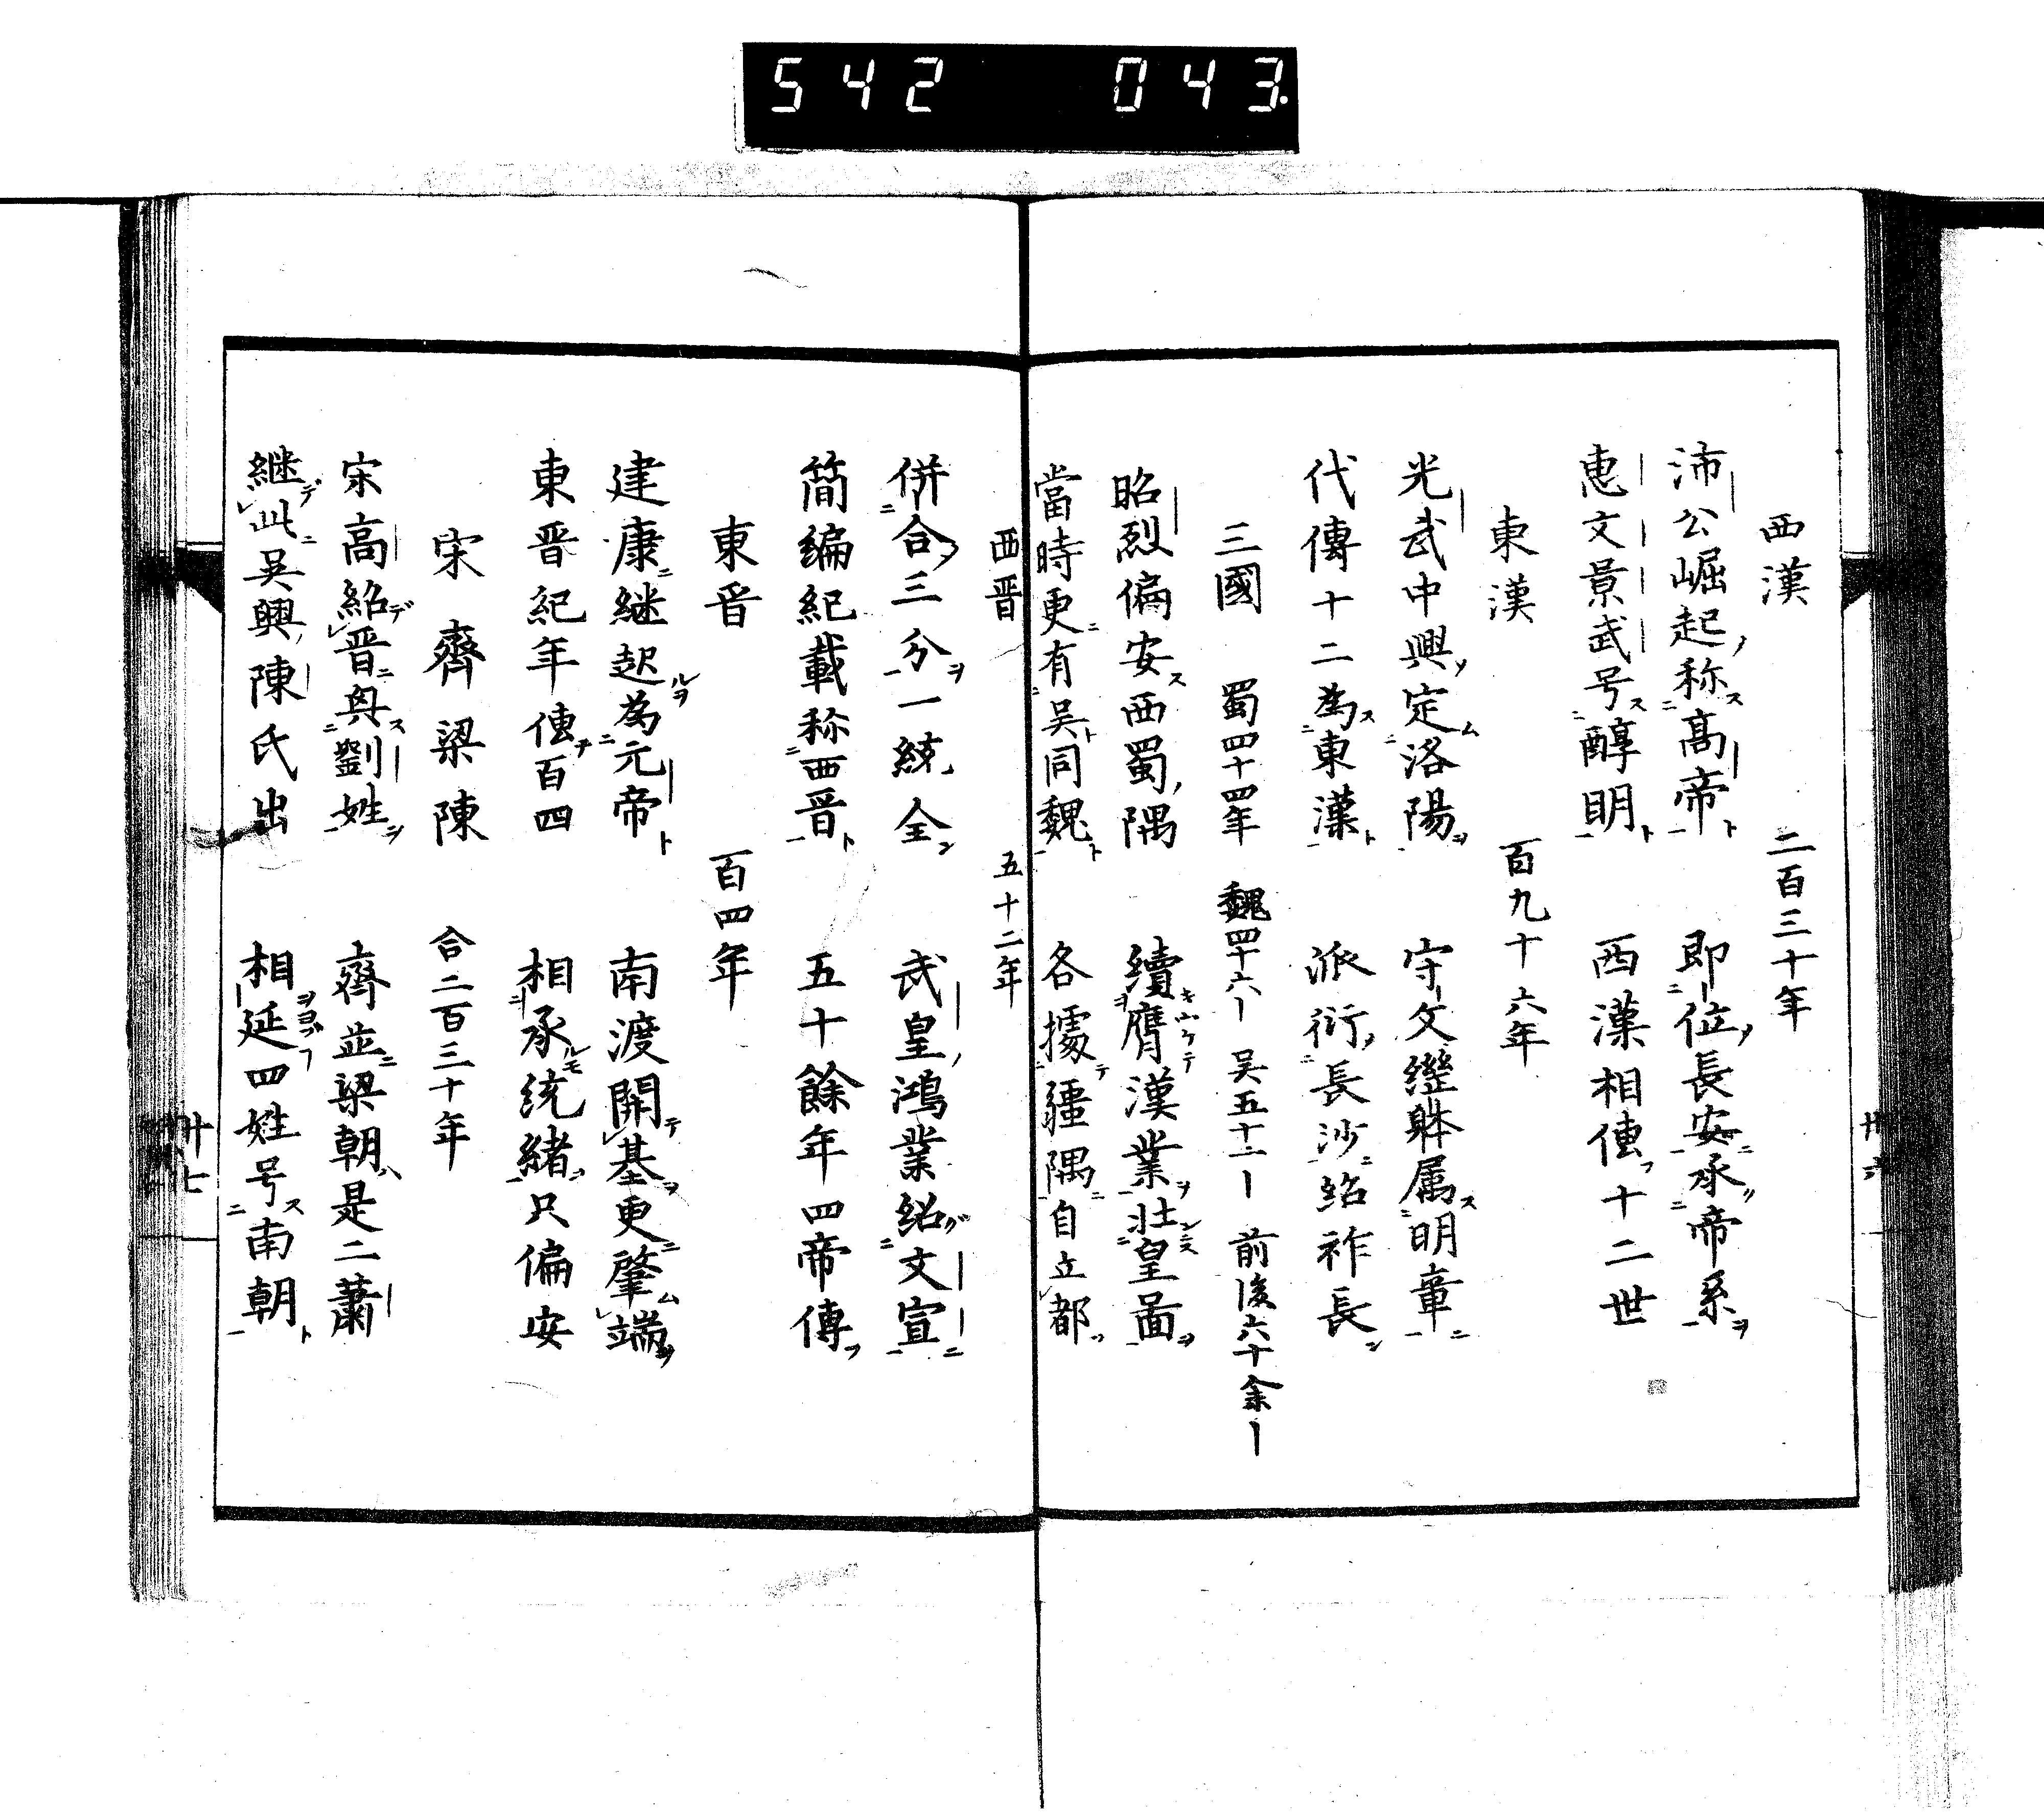 542 043.
西漢 二百三十年
沛公崛起称高帝 即位長安承帝系
恵文景武号醇明 西漢相傳十二世
東漢 百九十六年
光武中興定洛陽 守文繼躰属明章
代傳十二為東漢 派衍長沙紹祚長
三國 蜀四十四年 魏四十六〡 吴五十二〡 前後六十余〡
昭烈偏安西蜀隅 續膺漢業壮皇啚
當時更有吴同魏 各據疆隅自立都
西晋 五十二年
併合三分一統全 武皇鴻業紹文宣
簡編紀載称西晋 五十餘年四帝傳
東晋 百四年
建康継起為元帝 南渡開基更肇端
東晋紀年傳百四 相承統緒只偏安
宋齊梁陳 合二百三十年
宋高紹晋與劉姓 齊並梁朝是二蕭
継此吴興陳氏出 相延四姓号南朝
廿七